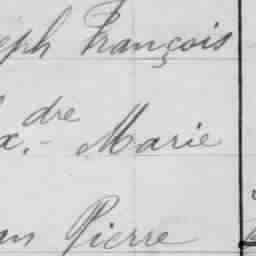 eph François
x.dre Marie
an Pierre